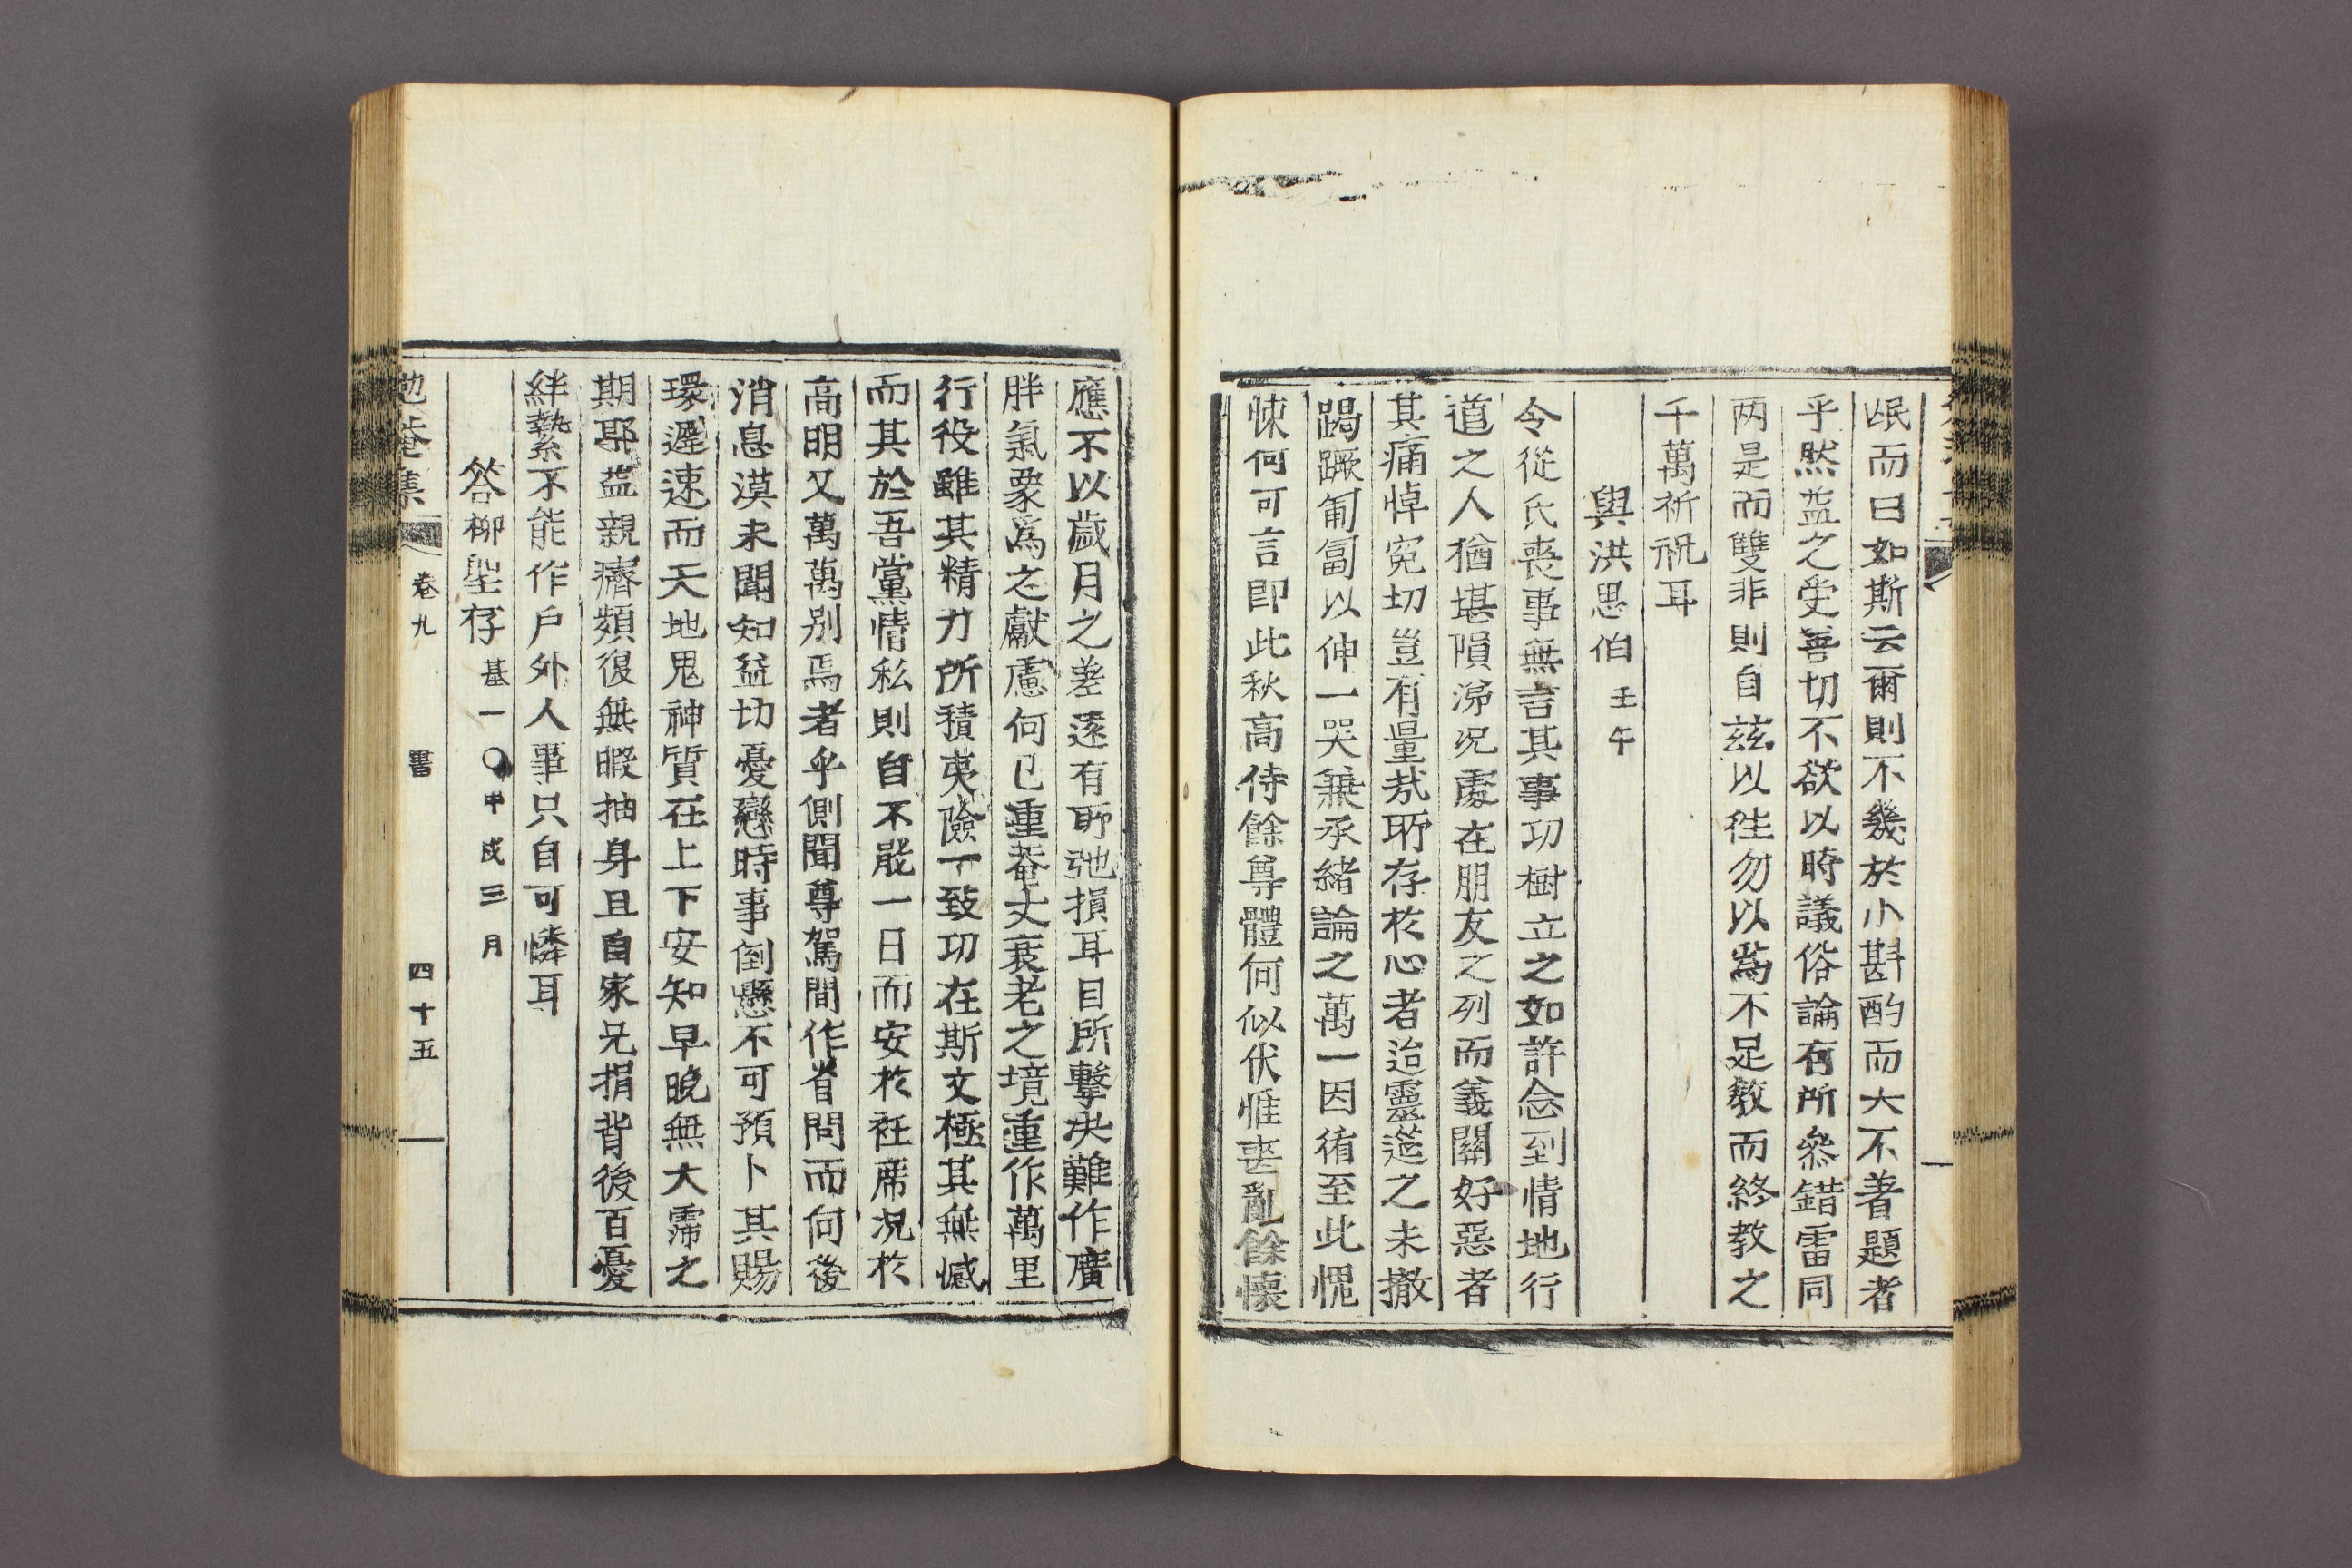 岷而曰如斯云爾則不幾於小斟酌而大不著題者
乎然益之受善切不欲以時議俗論有所參錯雷同
两是而雙非則自玆以徃勿以爲不足敎而終教之
千萬祈祝耳
與洪思伯 壬午
令從氏喪事無言其事功樹立之如許念到情地行
道之人猶堪隕涕况處在朋友之列而義關好惡者
其痛悼寃切豈有量哉所存於心者迨靈筵之未撤
踢蹶匍匐以伸一哭兼承緖論之萬一因循至此愧
悚何可言卽此秋高侍餘尊體何似伏惟喪亂餘懷
應不以歲月之差遠有所弛損耳目所擊决難作廣
胖氣象爲之獻慮何已重菴丈衰老之境重作萬里
行役雖其精力所積夷險一致功在斯文極其無憾
而其於吾黨情私則自不能一日而安於袵席况於
高明又萬萬别焉者乎側聞尊駕間作省問而何後
消息漠未聞知益切憂戀時事倒懸不可預卜其賜
環遲速而天地鬼神質在上下安知早晩無大霈之
期耶益親癠頻復無暇抽身且自家兄捐背後百憂
絆縶不能作戶外人事只自可憐耳
答柳聖存 基一〇甲戌三月
勉菴集 卷九 書 四十五